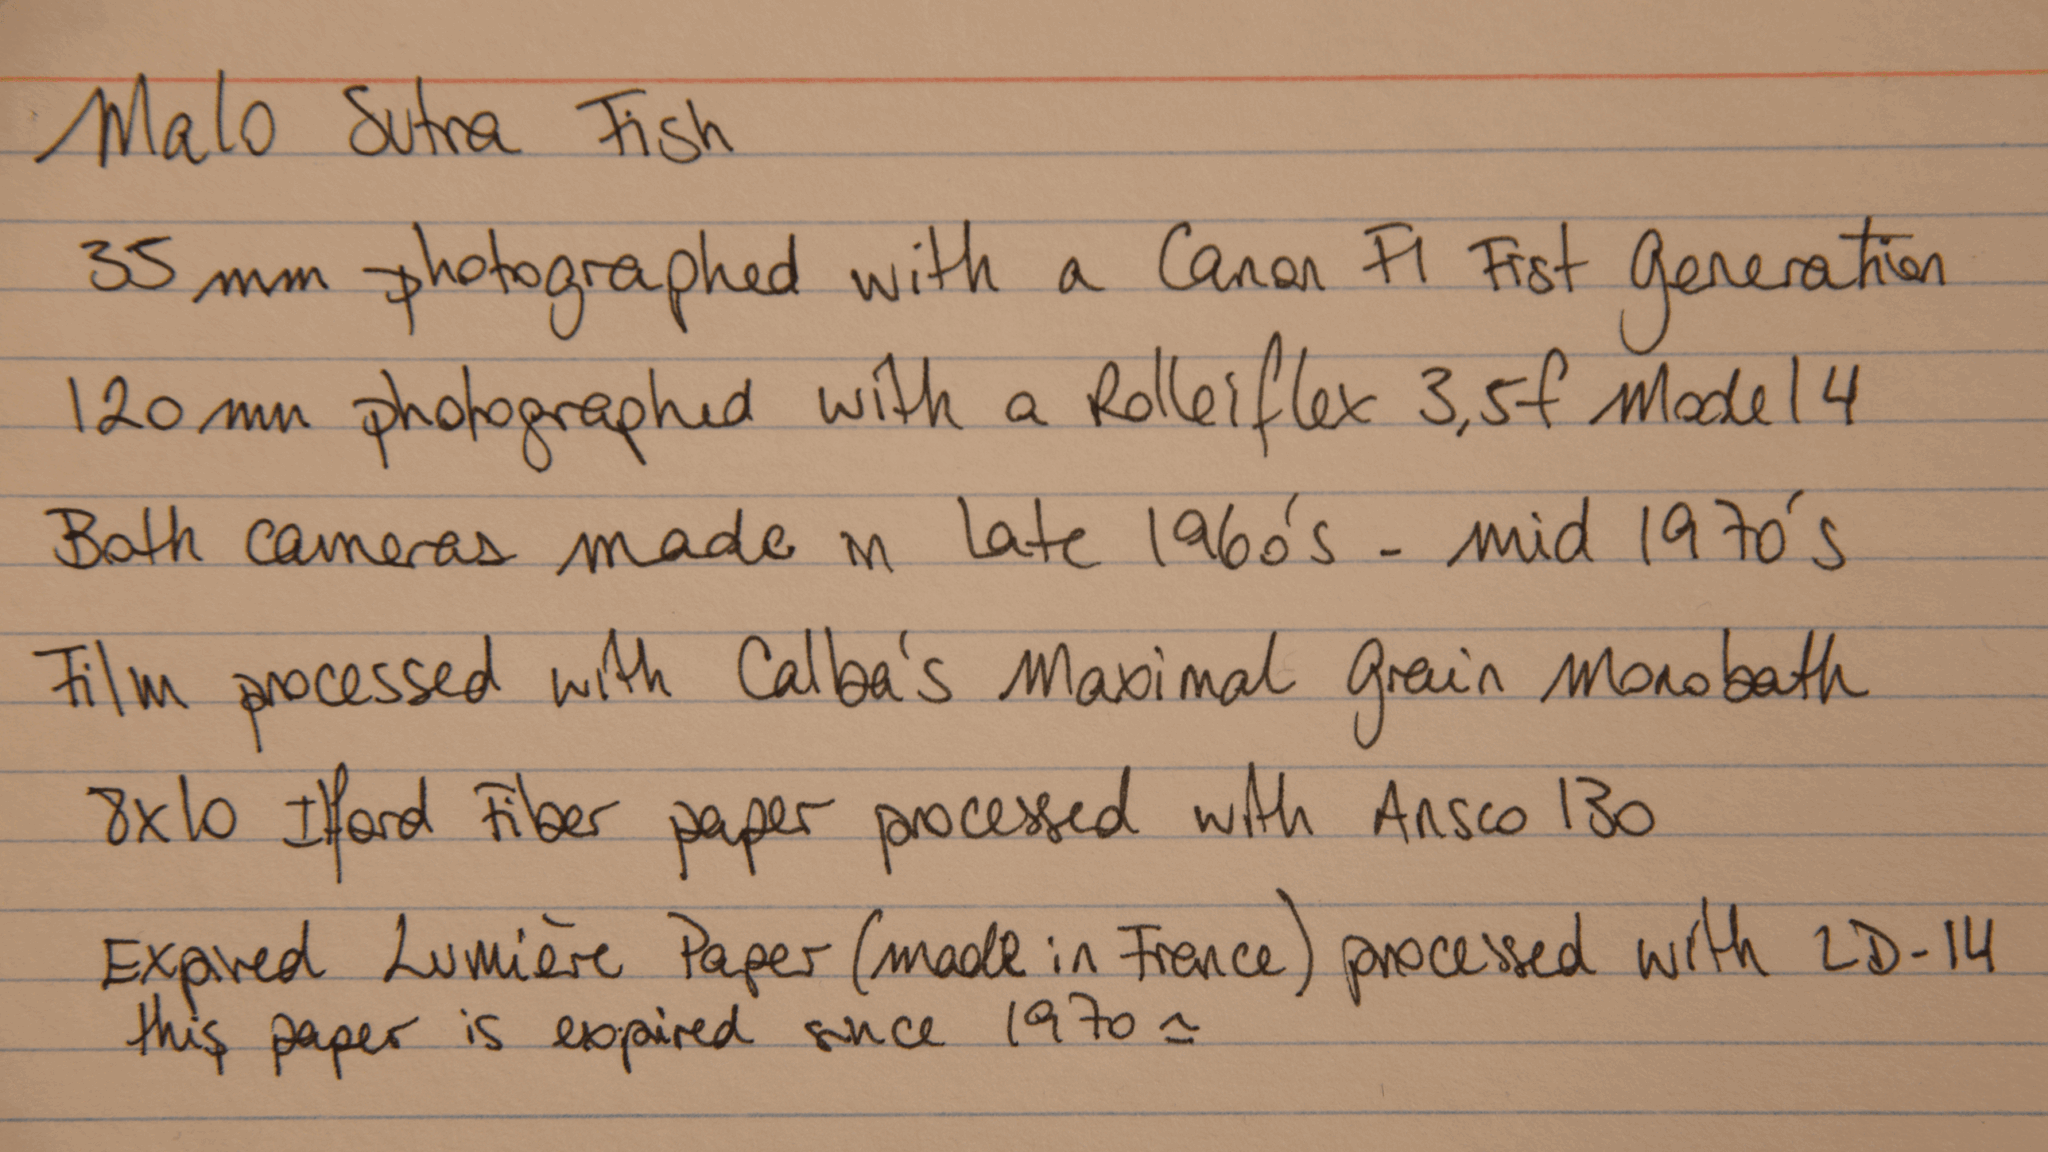 Malo Sutra Fish
35mm photographed with a Canon F1 Fist Generation
120mm photographed with a Rolleiflex 3,5f Model 4
Both cameras made in late 1960's - mid 1970's
Film processed with Calba's Maximal Grain Monobath
8x10 Ilford Fiber paper processed with Ansco 130
Expired Lumière Paper (made in France) processed with LD-14
this paper is expired since 1970 ≃